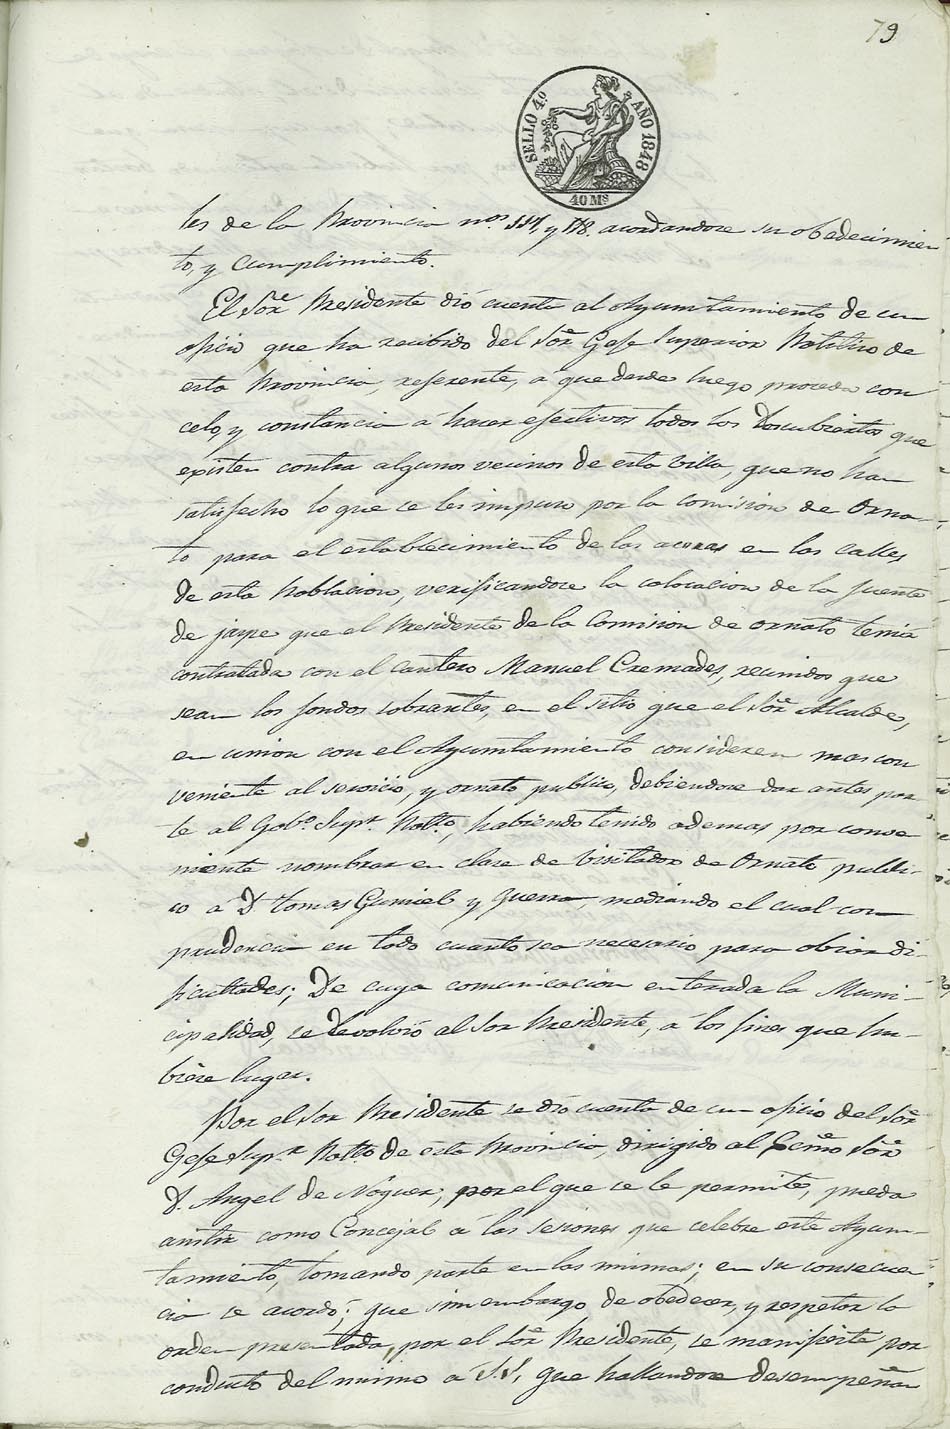 79
SELLO 4º AÑO 1848
40 Ms
les de la Provincia nos. 117, y 118. acordandose su obedecimien
to, y cumplimiento.
El Sor. Presidente dió cuenta al Ayuntamiento de un
oficio que ha recibido del Sor. Gefe Superior Politico de
esta Provincia, referente, a que desde luego proceda con
celo, y constancia á hacer efectivos todos los Descubiertos que
existen contra algunos vecinos de esta Villa, que no han
satisfecho lo que se les impuso por la comision de Orna-
to para el establecimiento de las aceras en las calles
de esta Poblacion, verificandose la colocacion de la fuente
de jaspe que el Presidente de la Comision de ornato tenia
contratada con el cantero Manuel Cremades, reunidos que
sean los fondos sobrantes, en el sitio que el Sor. Alcalde,
en union con el Ayuntamiento consideren mas con
veniente al servicio, y ornato publico, debiendose dar antes par
te al Gobo. Supr. Polto., habiendo tenido ademas por conve
niente nombrar en clase de Visitador de Ornato publi-
co á D. Tomas Gumiel y Guerra mediando el cual con
prudencia en todo cuanto sea necesario para obiar di-
ficultades; De cuya comunicacion enterada la Muni-
cipalidad, se devolvió al Sor Presidente, á los fines que hu-
biere lugar.
Por el Sor Presidente se dió cuenta de un oficio del Sor.
Gefe Supr. Polto. de esta Provincia, dirigido al Ecmo. Sor.
D. Angel de Nóguer, por el que se le permite, pueda
asistir como Concejal á las sesiones que celebre este Ayun-
tamiento, tomando parte en las mismas; en su consecuen
cia se acordó; que sin embargo de obedecer, y respetar la
orden presentada, por el Sor. Presidente, se manifieste por
conducto del mismo á S.S., que hallandose desempeñan